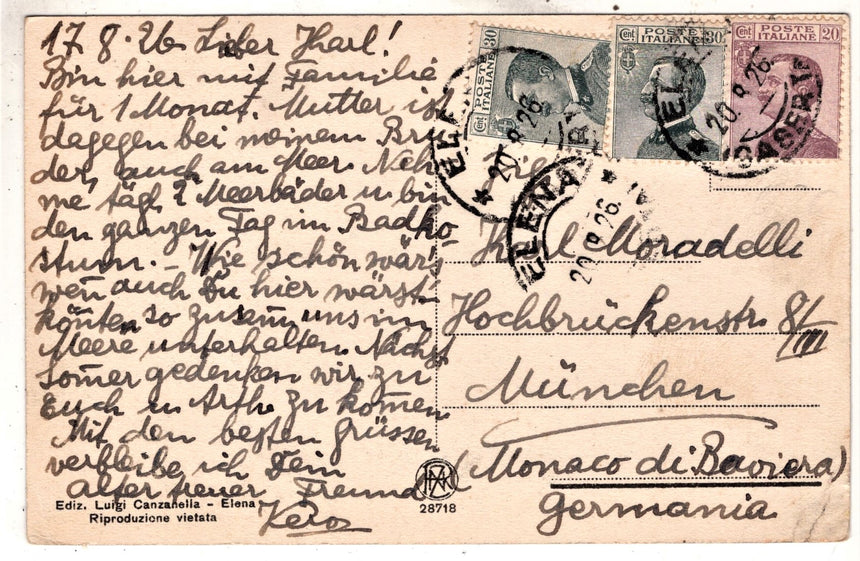 17.8.26 Lieber Karl!
Bin hier mit Familie
für 1 Monat. Mutter ist
dagegen bei meinem Bru-
der, auch am Meer. Neh-
me tägl. 2 Meerbäder u. bin
den ganzen Tag im Badko-
stum. – Wie schön wär's
wen̄ auch Du hier wärst
kön̄ten so zusam̄ uns im
Meere unterhalten. Nächst
Som̄er gedenken wir zu
Euch zu kom̄en
Mit den besten Grüssen
verbleibe ich Dein
alter treuer Freund
Ediz. Luigi Canzanella - Elena
Riproduzione vietata
28718
Cent 30
POSTE
ITALIANE
POSTE
ITALIANE
Cent 30
POSTE
ITALIANE
Cent 20
ELENA
20.8.26
CASERTA
Karl Moradelli
Hochbrückenstr. 8/III
München
(Monaco di Baviera)
Germania